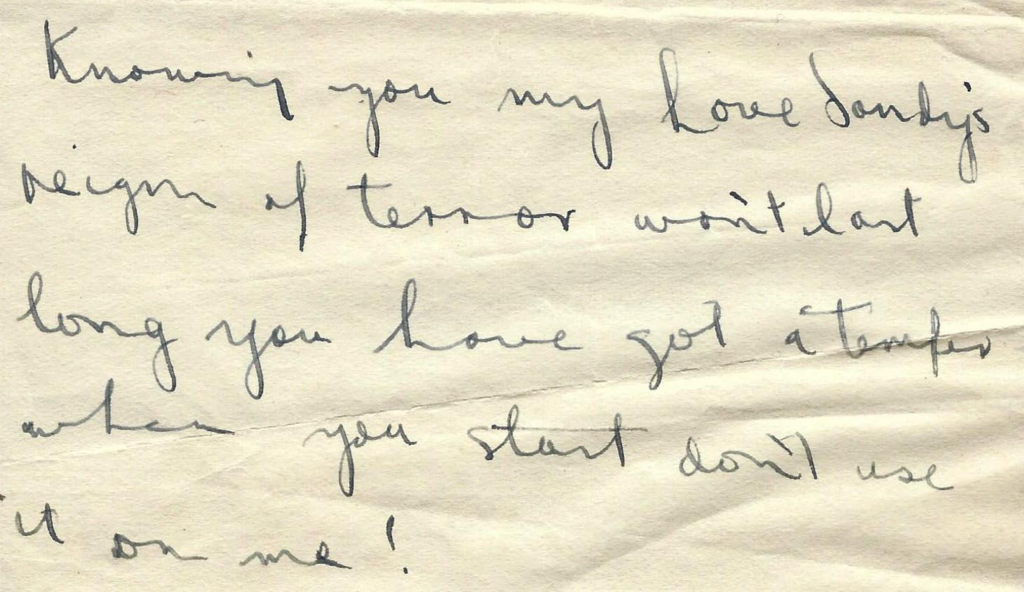 Knowing you my love Sandy's
reign of terror won't last
long you have got a temper
when you start don't use
it on me!